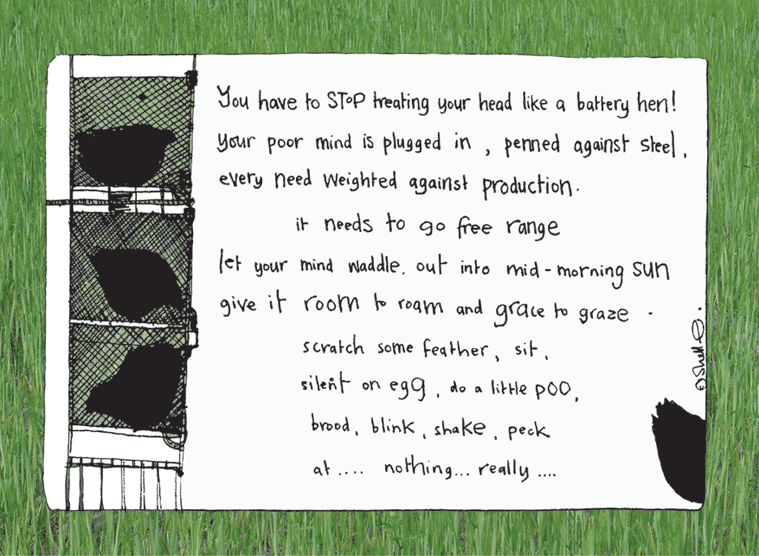 You have to STOP treating your head like a battery hen!
your poor mind is plugged in , penned against steel,
every need weighted against production.
it needs to go free range
let your mind waddle, out into mid-morning sun
give it room to roam and grace to graze -
scratch some feather, sit,
silent on egg, do a little poo,
brood, blink, shake, peck
at.... nothing... really....